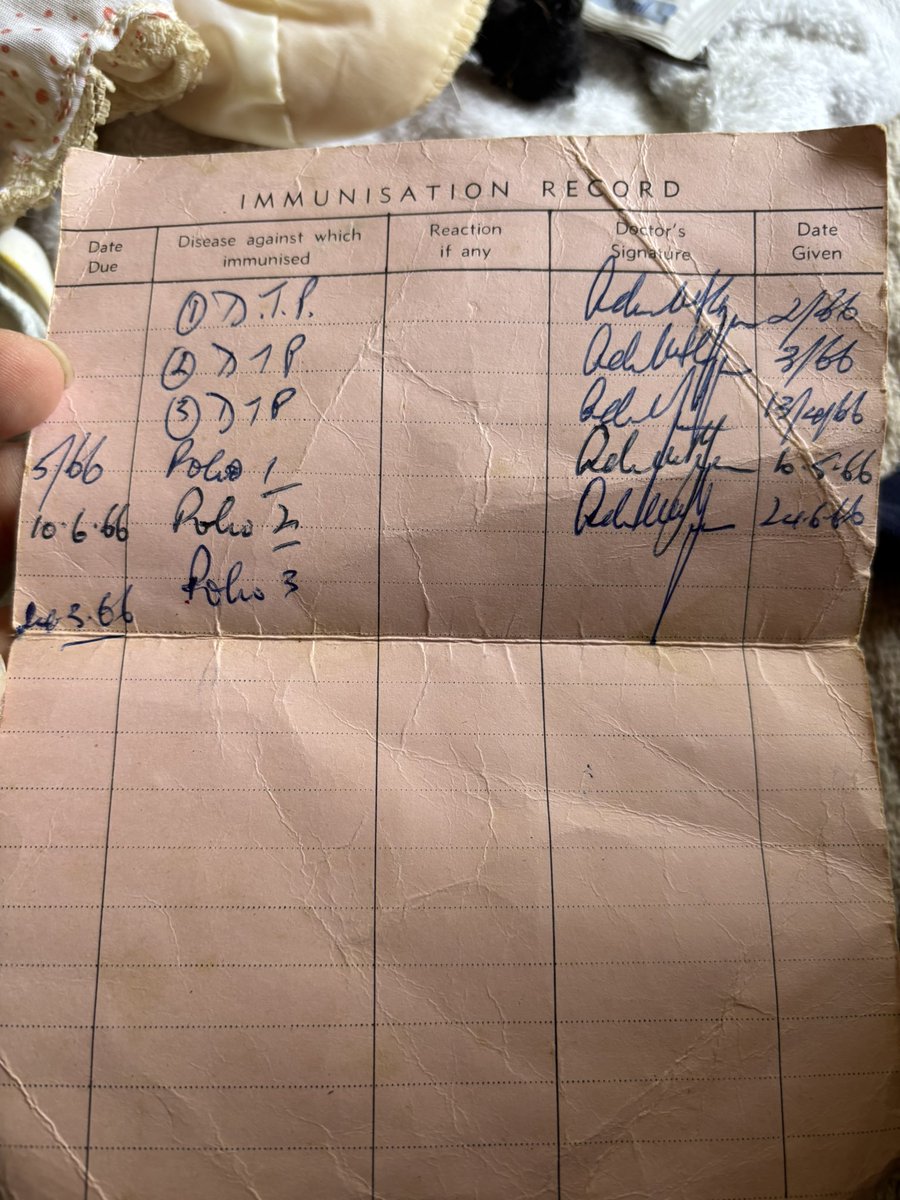 IMMUNISATION RECORD
Date Due Disease against which immunised Reaction if any Doctor's Signature Date Given
① D.T.P. 2/66
② DTP 3/66
③ DTP 13/4/66
5/66 Polio 1 10.5.66
10.6.66 Polio 2 24.6.66
Polio 3
3.66